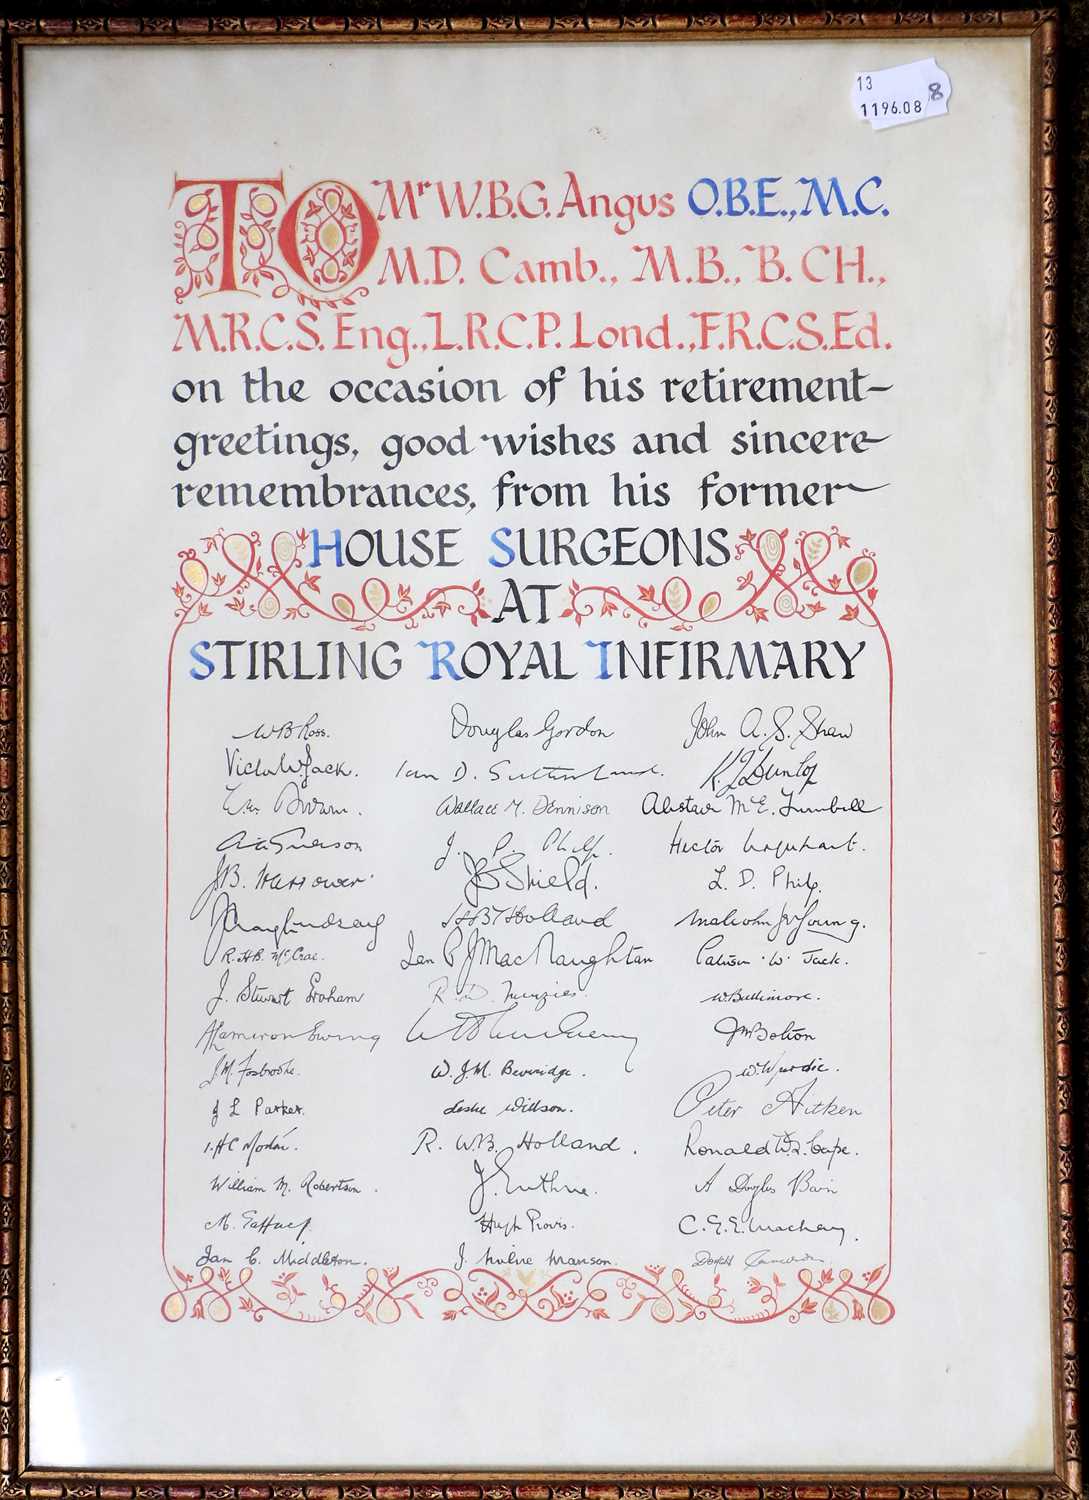 13
1196.08 8
TO Mr W.B.G. Angus O.B.E., M.C.
M.D. Camb., M.B., B. CH.,
M.R.C.S. Eng., L.R.C.P. Lond., F.R.C.S.Ed.
on the occasion of his retirement-
greetings, good wishes and sincere
remembrances, from his former
HOUSE SURGEONS
AT
STIRLING ROYAL INFIRMARY
W B Ross. Douglas Gordon John A. S. Shaw
Victor W. Jack. Ian D. Sutherland. K. J. Dunlop
Wm Brown. Wallace M. Dennison Alistair McE. Turnbull
J. P. Philp. Hector Urquhart.
J.B. J B Shield. L. D. Philp.
J Craig Lindsay Holland Malcolm Young.
R. H.B. McCrae. Ian P J MacNaughton W. Jack.
J. Stewart Graham R. D. Menzies. W Baltimore.
A Cameron Ewing Bolton
J.M. Fosbrooke. W. J.M. Beveridge. W. W
J L Parker. Leslie Willson. Peter Aitken
I. H C R. W.B. Holland. Ronald
William M. Robertson. J. Guthrie. A Douglas Bain
M. Gaffney Hugh Provis. C. G. E. Mackay.
Ian C. Middleton. J. Milne Manson. Donald Cameron.